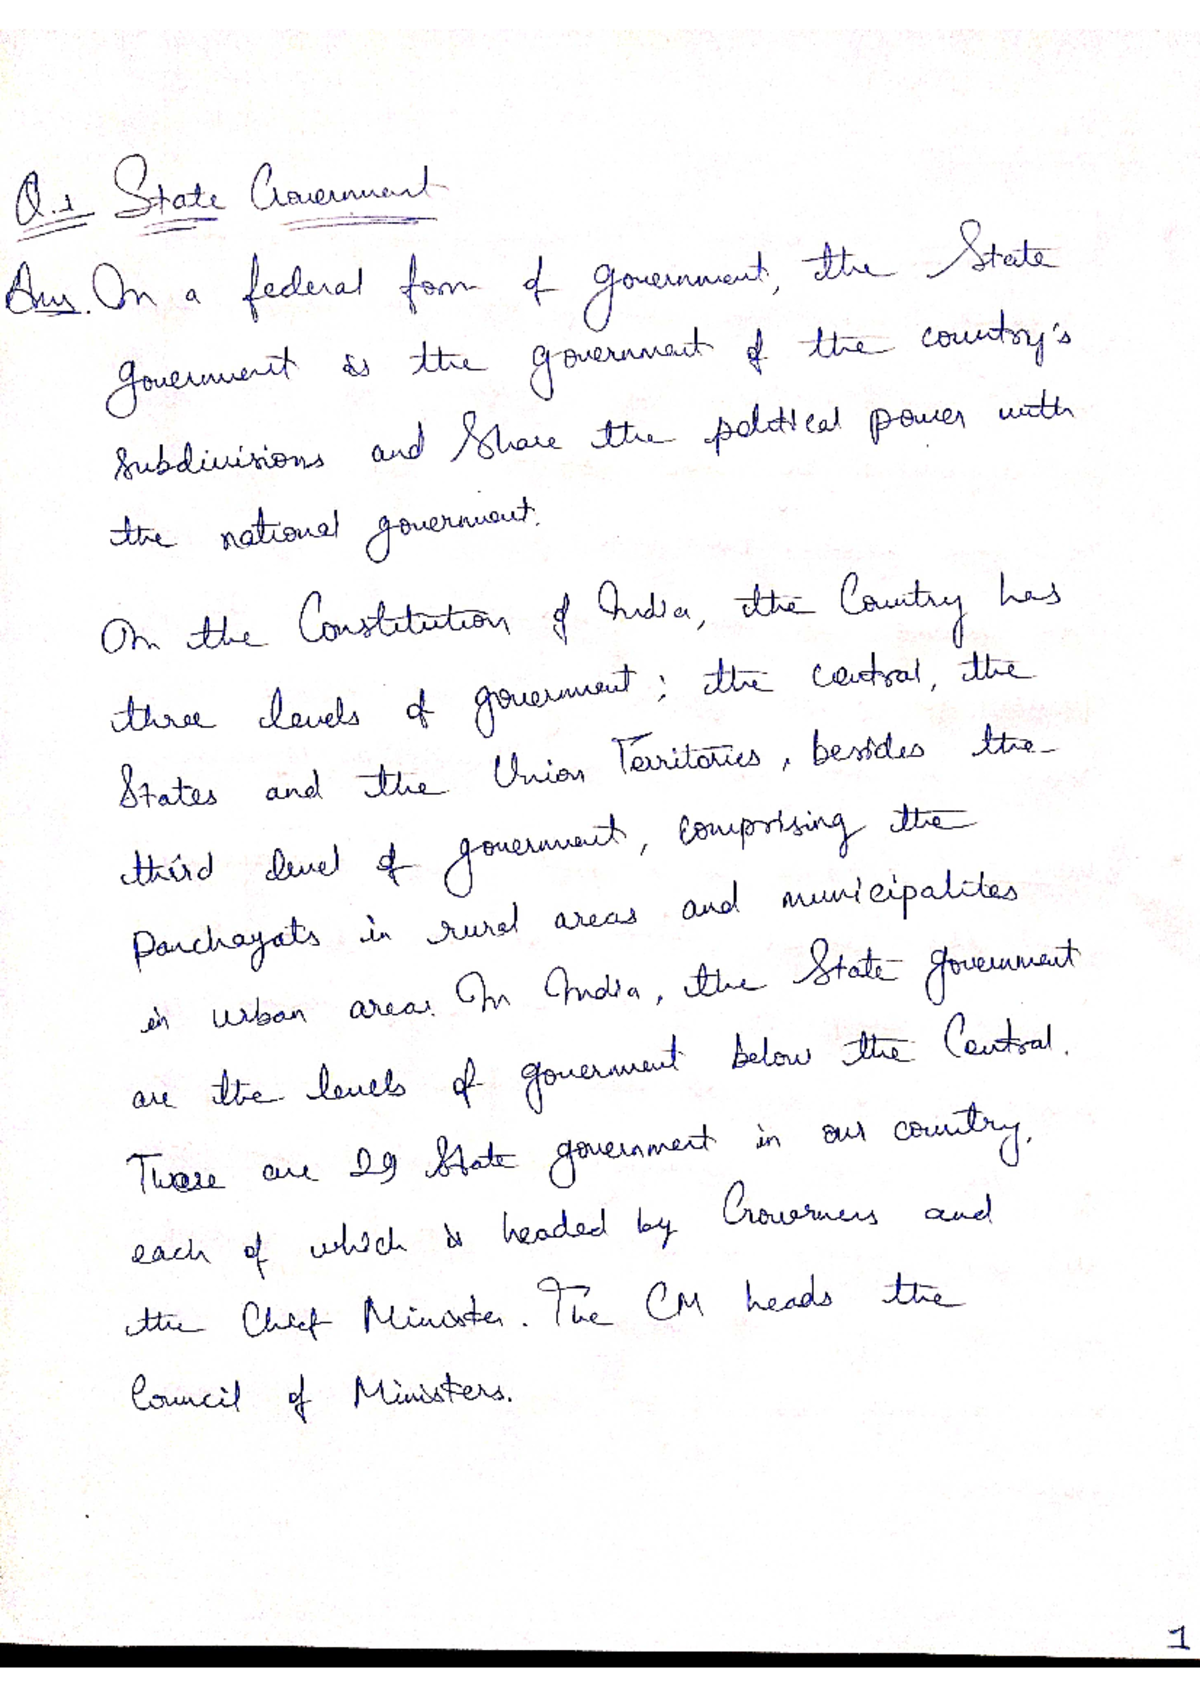 Q.1 State Government
Ans. In a federal form of government, the State
government is the government of the country's
subdivisions and share the political power with
the national government.
In the Constitution of India, the Country has
three levels of government; the central, the
States and the Union Territories, besides the
third level of government, comprising the
Panchayats in rural areas and municipalites
in urban areas. In India, the State government
are the levels of government below the Central.
There are 29 State government in our country,
each of which is headed by Governers and
the Chief Minister. The CM heads the
Council of Ministers.
1